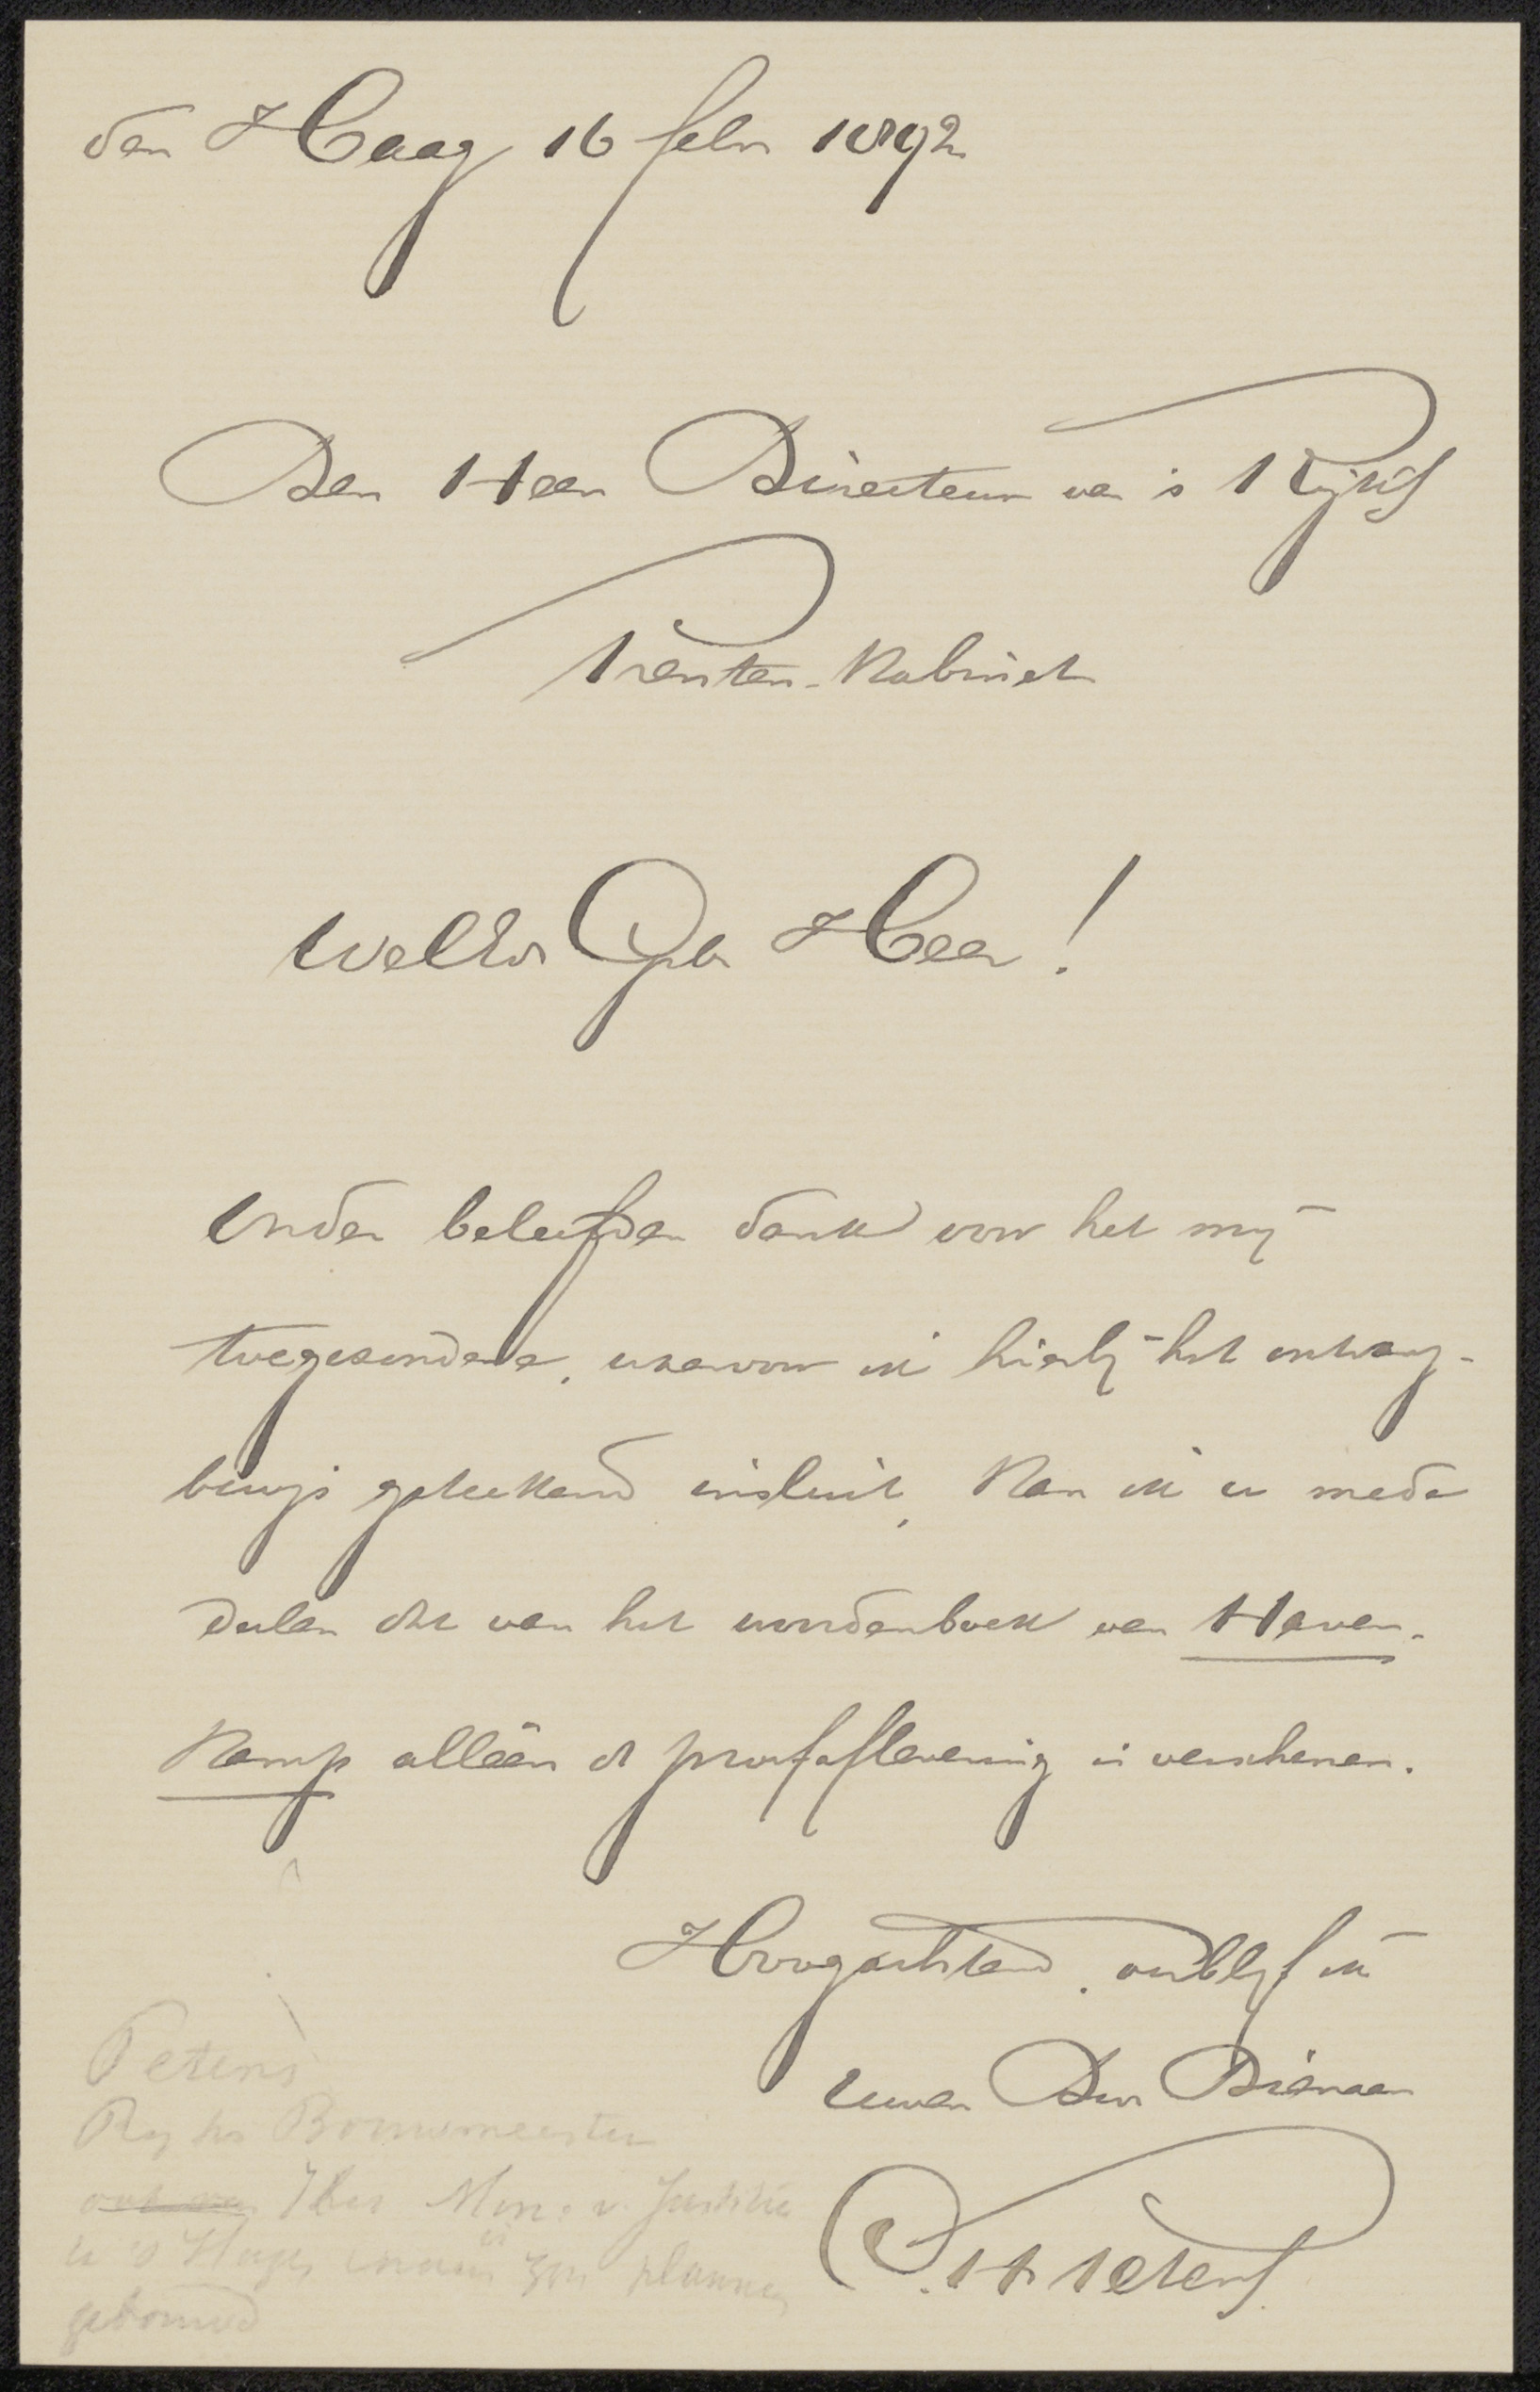 den Haag 16 febr 1892
Den Heer Directeur van 's Rijks
Prenten-Kabinet
WelEd Geb Heer!
Onder beleefden dank voor het mij
toegezondene, waarvoor ik hierbij het ontvang-
bewijs geteekend insluit, kan ik u mede
deelen dat van het woordenboek van Haver-
Kamp alléén de proefaflevering is verschenen.
Hoogachtend, verblijf ik
Uwen Dw Dienaar
C. H Peters.
Peters
Rijks Bouwmeester
Het Min. v. Justitie
is zijn plannen
gebouwd